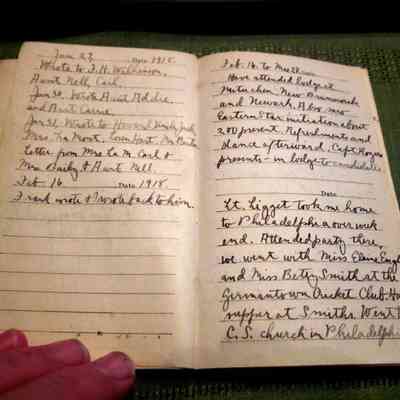 Jan 27 Date 1918.
Wrote to F.H. Wilkinson,
Aunt Nell, Carl.
Jan 30. Wrote Aunt Addie,
and Aunt Carrie.
Jan 31. Wrote to Howard, Uncle Jack,
Mrs. La Mont,
Letter from Mrs La M. Carl &
Mrs. Daily & Aunt Nell.
Feb. 16 Date 1918.
Frank wrote & I wrote back to him.
Feb. 16. to Mch
Have attended lodge at
Metuchen, New Brunswick
and Newark. Also saw
Eastern Star initiation about
200 present. Refreshments and
dance afterward. Capt. Rogers
presents - in lodge to candidates
Date
Lt. Ligget took me home
to Philadelphia over week
end. Attended party there,
we went with Miss Elaine Engl
and Miss Betty Smith at the
Germantown Cricket Club. Ha
supper at Smiths. Went
C.S. church in Philadelphi